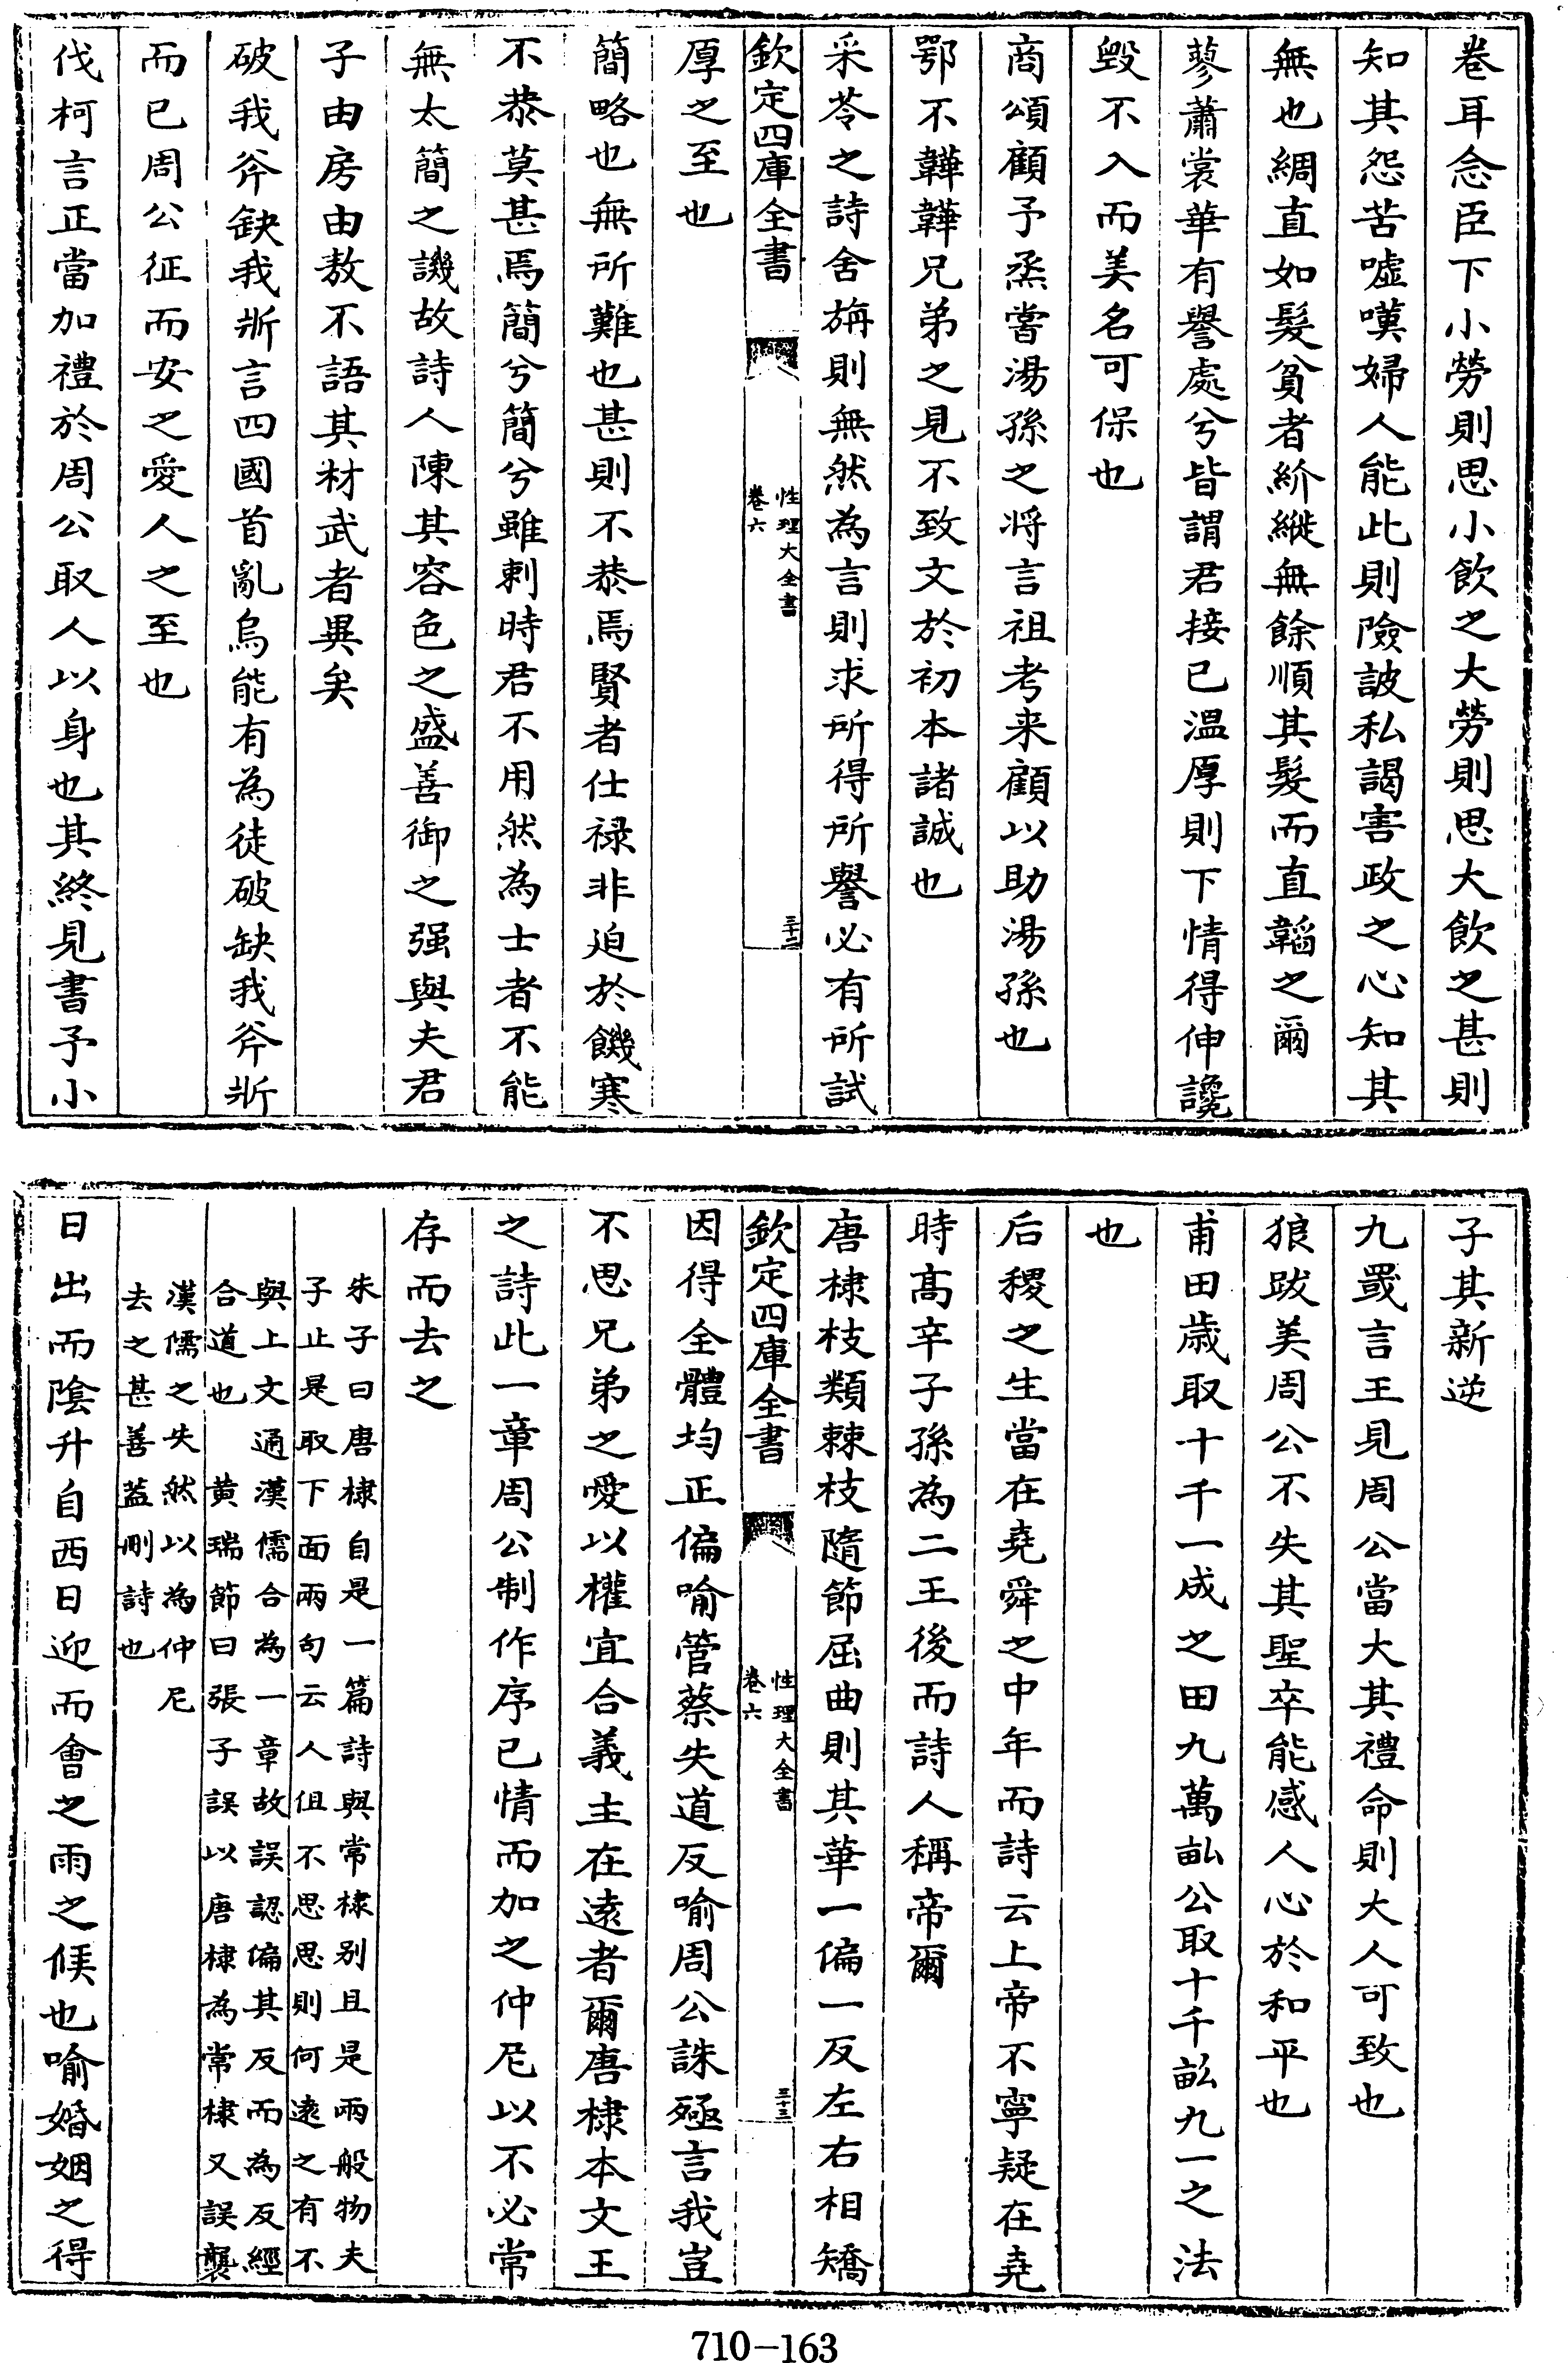 卷耳念臣下小勞則思小飲之大勞則思大飲之甚則
知其怨苦噓嘆婦人能此則險詖私謁害政之心知其
無也綢直如髮貧者紒縰無餘順其髮而直韜之爾
蓼蕭裳華有譽處兮皆謂君接已温厚則下情得伸讒
毀不入而美名可保也
商頌顧予烝嘗湯孫之將言祖考来顧以助湯孫也
鄂不韡韡兄弟之見不致文於初本諸誠也
采苓之詩舍旃則無然為言則求所得所譽必有所試
欽定四庫全書
性理大全書
卷六
三十二
厚之至也
簡略也無所難也甚則不恭焉賢者仕禄非迫於饑寒
不恭莫甚焉簡兮簡兮雖刺時君不用然為士者不能
無太簡之譏故詩人陳其容色之盛善御之强與夫君
子由房由敖不語其材武者異矣
破我斧缺我斨言四國首亂烏能有為徒破缺我斧斨
而已周公征而安之愛人之至也
伐柯言正當加禮於周公取人以身也其終見書予小
子其新逆
九罭言王見周公當大其禮命則大人可致也
狼跋美周公不失其聖卒能感人心於和平也
甫田歳取十千一成之田九萬畝公取十千畝九一之法
也
后稷之生當在堯舜之中年而詩云上帝不寧疑在堯
時髙辛子孫為二王後而詩人稱帝爾
唐棣枝類棘枝隨節屈曲則其華一偏一反左右相矯
欽定四庫全書
性理大全書
卷六
三十三
因得全體均正偏喻管蔡失道反喻周公誅殛言我豈
不思兄弟之愛以權宜合義主在逺者爾唐棣本文王
之詩此一章周公制作序已情而加之仲尼以不必常
存而去之
朱子曰唐棣自是一篇詩與常棣别且是兩般物夫
子止是取下面兩句云人但不思思則何逺之有不
與上文通漢儒合為一章故誤認偏其反而為反經
合道也 黄瑞節曰張子誤以唐棣為常棣又誤襲
漢儒之失然以為仲尼
去之甚善葢刪詩也
日出而隂升自西日迎而會之雨之候也喻婚姻之得
710-163